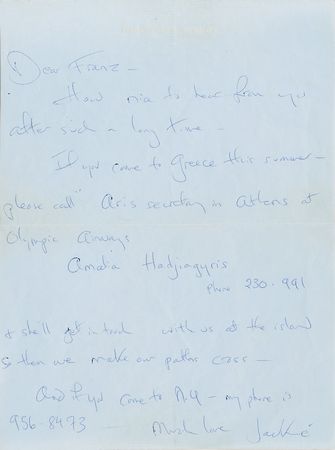 Dear Franz –
How nice to hear from you
after such a long time –
If you come to Greece this summer –
please call Aris secretary in Athens at
Olympic Airways
Amalia Hadjiagyris
phone 230 - 991
& shell get in touch with us at the island
so then we make our paths cross –
And if you come to N.Y – my phone is
956 - 8473 – Much love Jackie